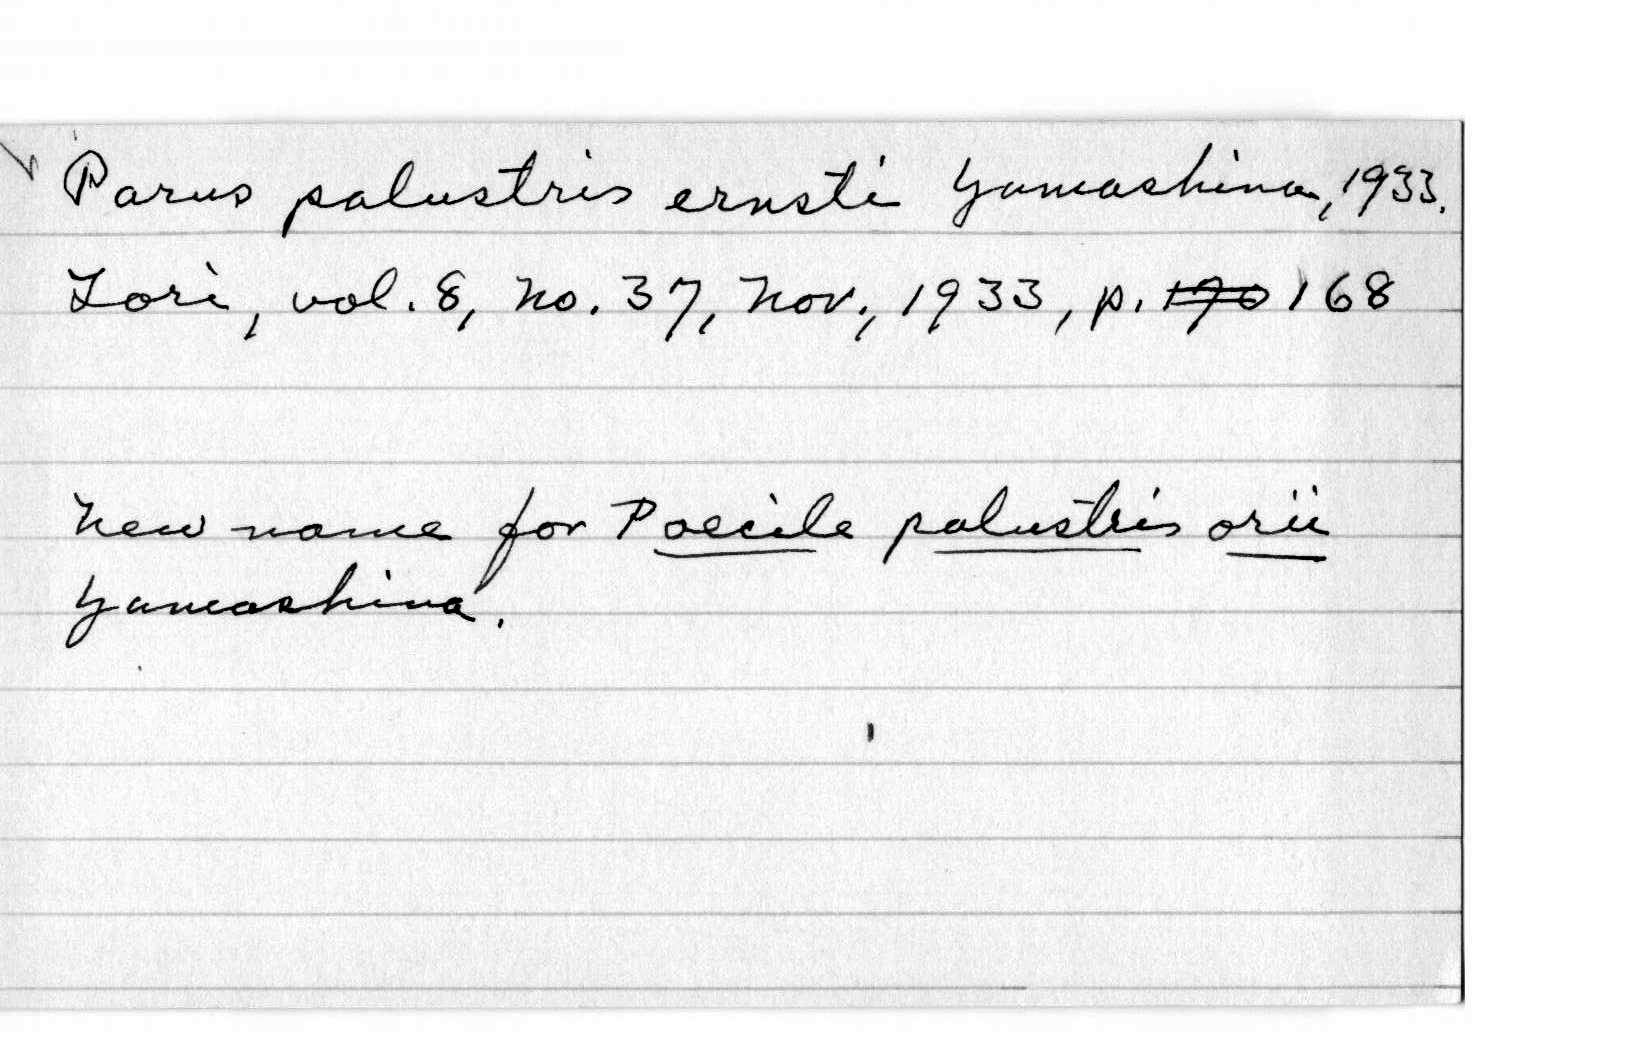 Parus palustris ernsti Yamashina, 1933.
Tori, vol. 8, no. 37, Nov., 1933, p. 170 168
New name for Poecile palustris orii
Yamashina.